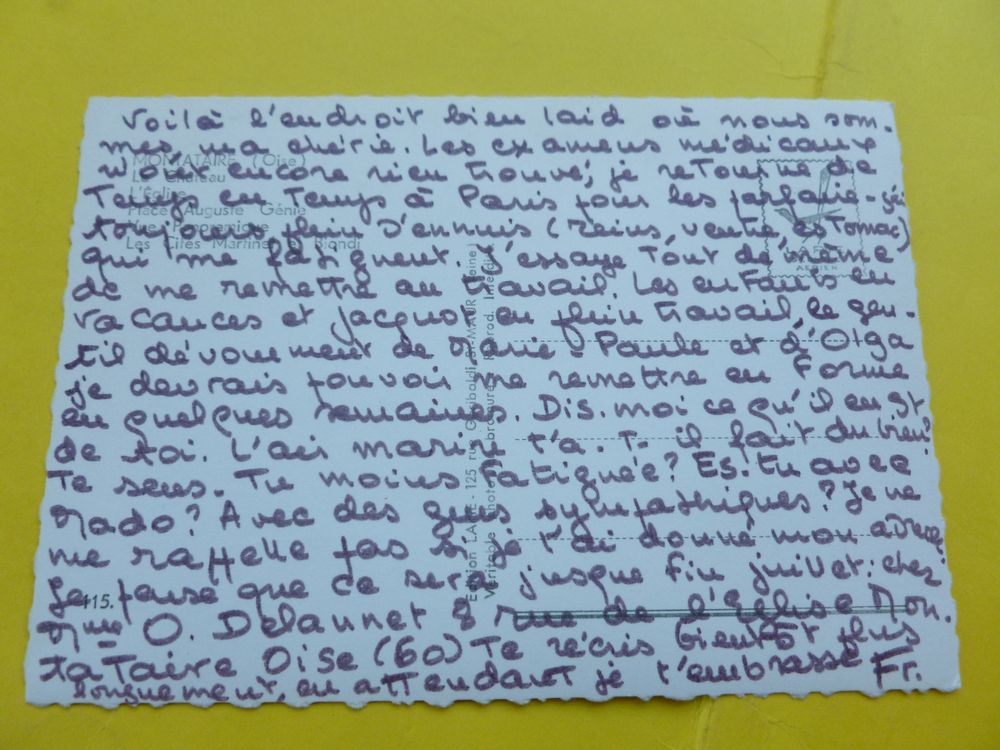 Voilà l'endroit bien laid où nous som-
mes, ma chérie. Les examens médicaux
n'ont encore rien trouvé, je retourne de
Temps en Temps à Paris pour les parfaire - j'ai
toujours plein d'ennuis (reins, ventre, estomac)
qui me fatiguent. J'essaye Tout de même
de me remettre au travail. Les enfants en
vacances et Jacquot en plein travail, le gen-
til dévouement de Marie-Paule et d'Olga
je devrais pouvoir me remettre en Forme
en quelques semaines. Dis-moi ce qu'il en est
de toi. L'air marin t'a-T-il fait du bien?
Te sens-Tu moins fatiguée? Es-tu avec
Mado? Avec des gens sympathiques? Je ne
me rappelle pas si je t'ai donné mon adresse
Je pense que ce sera jusque fin juillet: chez
Mme O. Delannet 8 rue de l'Eglise Mon-
tataire Oise (60) Te récris bientôt plus
longuement, en attendant je t'embrasse Fr.
MONTATAIRE (Oise)
Le Château
L'Église
Place Auguste Génie
Vue Panoramique
Les Cités Martinet et Biondi
115.
Edition LAPIE - 125 rue Garibaldi, St-MAUR (Seine)
Véritable Photo-Bromure - Reprod. Interdite
LAPIE